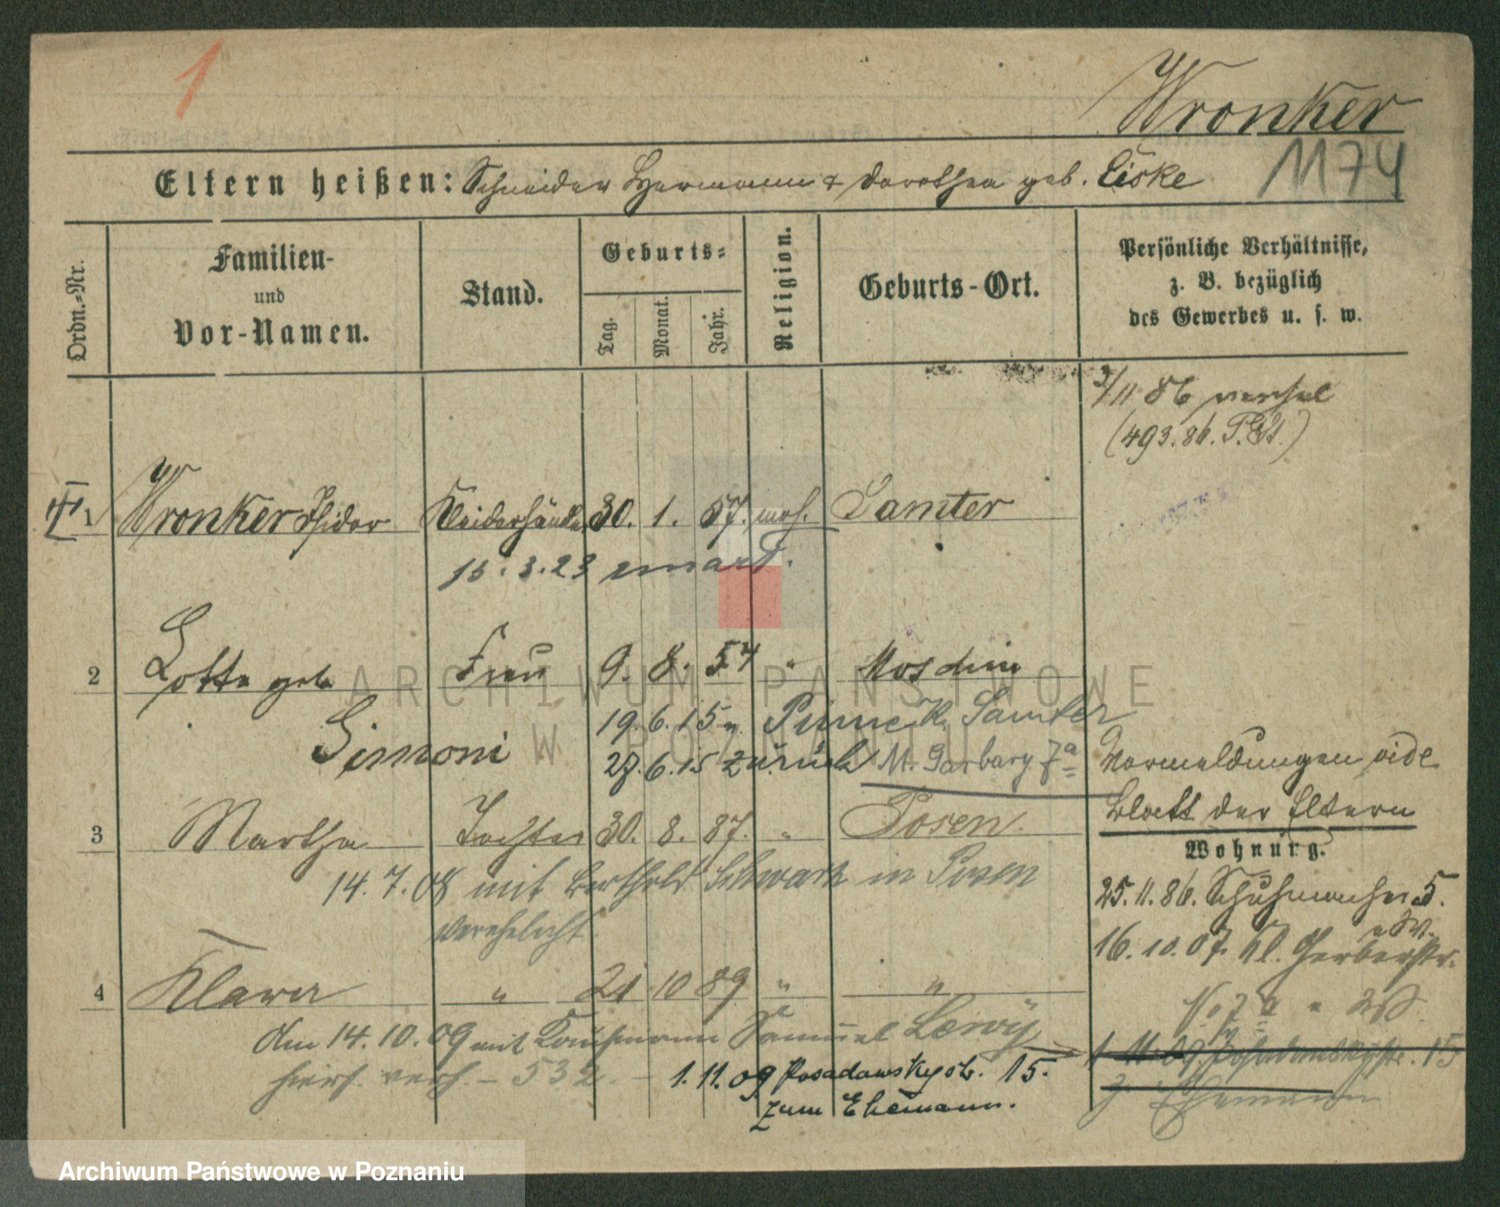 1
Wronker
1174
Eltern heißen: Schneider Hermann & Dorothea geb. Liske
Ordn.-Nr.
Familien- und Vor-Namen.
Stand.
Geburts-
Tag. Monat. Jahr.
Religion.
Geburts-Ort.
Persönliche Verhältnisse,
z. B. bezüglich
des Gewerbes u. s. w.
3/11 86
(493.86.
1 Wronker Isidor Kleiderhändler 30. 1. 57. mos. Samter
15.3.23
2 Lotte geb. Frau 9. 8. 54 "
Simoni
19.6.15 n. Pinne K. Samter
27.6.15 zurück M. Garbary 7a
Vormeldungen vide
Blatt der Eltern
3 Martha Tochter 30. 8. 87. " Posen
14.7.08 mit Berthold in Posen
verehelicht
Wohnung.
25.11.86. Schuhmacherstr. 5.
16.10.07. Kl. Gerberstr.
No 7a
4 Klara " 21 10 89 " "
den 14.10.09 mit Kaufmann Samuel Lewy
hiers. vereh. – 532.
1.11.09 Posadowskystr. 15.
zum Ehemann.
1.11.09 Posadowskystr. 15
z. Ehemann
ARCHIWUM PAŃSTWOWE
W POZNANIU
Archiwum Państwowe w Poznaniu